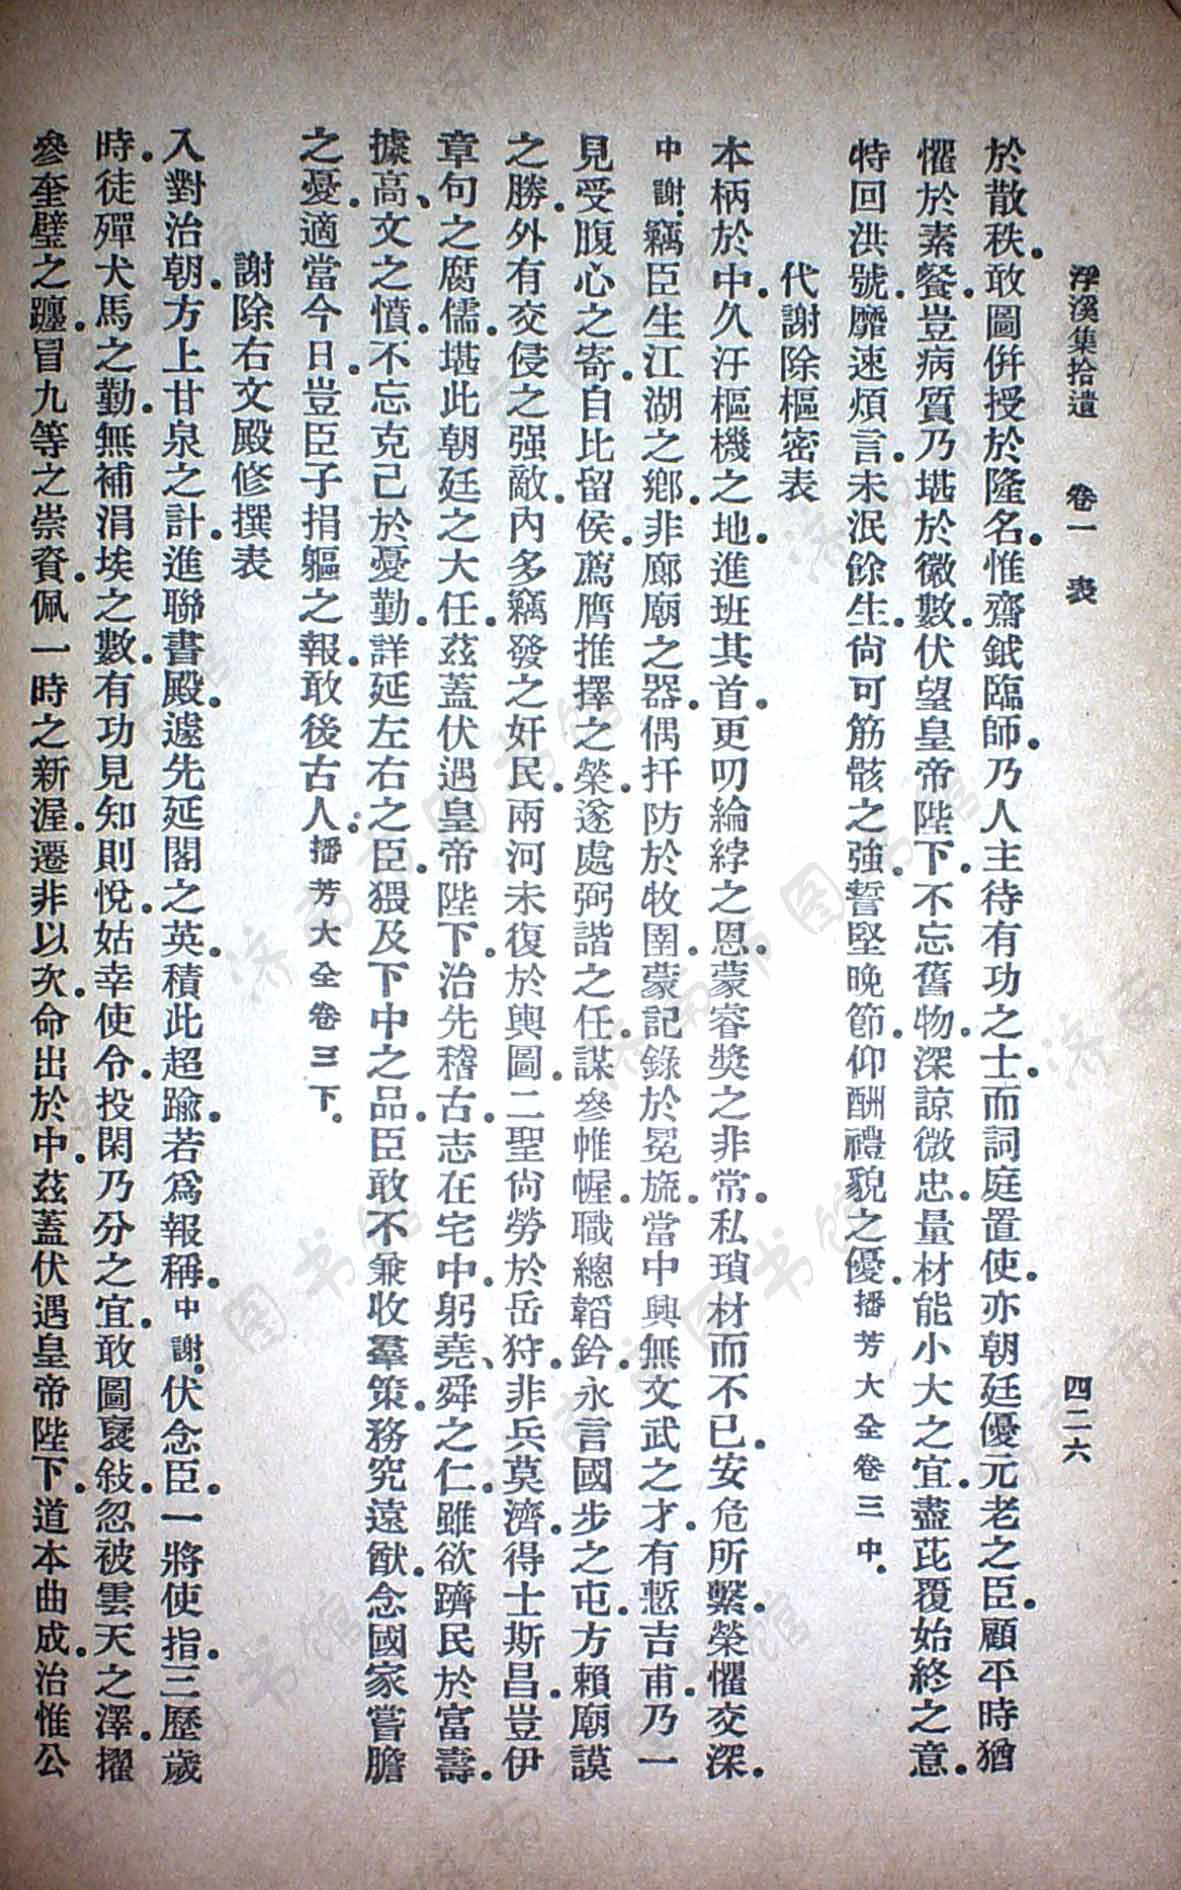 浮溪集拾遺　卷一　表　四二六
於散秩。敢圖併授於隆名。惟齋鉞臨師。乃人主待有功之士。而詞庭置使。亦朝廷優元老之臣。顧平時猶
懼於素餐。豈病質乃堪於徽數。伏望皇帝陛下。不忘舊物。深諒微忠。量材能小大之宜。盡芘覆始終之意。
特回洪號。靡速煩言。未泯餘生。尙可筋骸之強。誓堅晚節。仰酬禮貌之優。播芳大全卷三中。
代謝除樞密表
本柄於中。久汙樞機之地。進班其首。更叨綸綍之恩。蒙睿奬之非常。私瑣材而不已。安危所繫。榮懼交深。
中謝。竊臣生江湖之鄕。非廊廟之器。偶扞防於牧圉。蒙記錄於冕旒。當中興無文武之才。有慙吉甫。乃一
見受腹心之寄。自比留侯。薦膺推擇之榮。遂處弼諧之任。謀參帷幄。職總韜鈐。永言國步之屯。方賴廟謨
之勝。外有交侵之强敵。內多竊發之奸民。兩河未復於輿圖。二聖尙勞於岳狩。非兵莫濟。得士斯昌。豈伊
章句之腐儒。堪此朝廷之大任。茲蓋伏遇皇帝陛下。治先稽古。志在宅中。躬堯、舜之仁。雖欲躋民於富壽。
據高、文之憤。不忘克己於憂勤。詳延左右之臣。猥及下中之品。臣敢不兼收羣策。務究遠猷。念國家嘗膽
之憂。適當今日。豈臣子捐軀之報。敢後古人。播芳大全卷三下。
謝除右文殿修撰表
入對治朝。方上甘泉之計。進聯書殿。遽先延閣之英。積此超踰。若爲報稱。中謝。伏念臣。一將使指。三歷歲
時。徒殫犬馬之勤。無補涓埃之數。有功見知則悅。姑幸使令。投閑乃分之宜。敢圖襃敍。忽被雲天之澤。擢
參奎璧之躔。冒九等之崇資。佩一時之新渥。遷非以次。命出於中。茲蓋伏遇皇帝陛下。道本曲成。治惟公